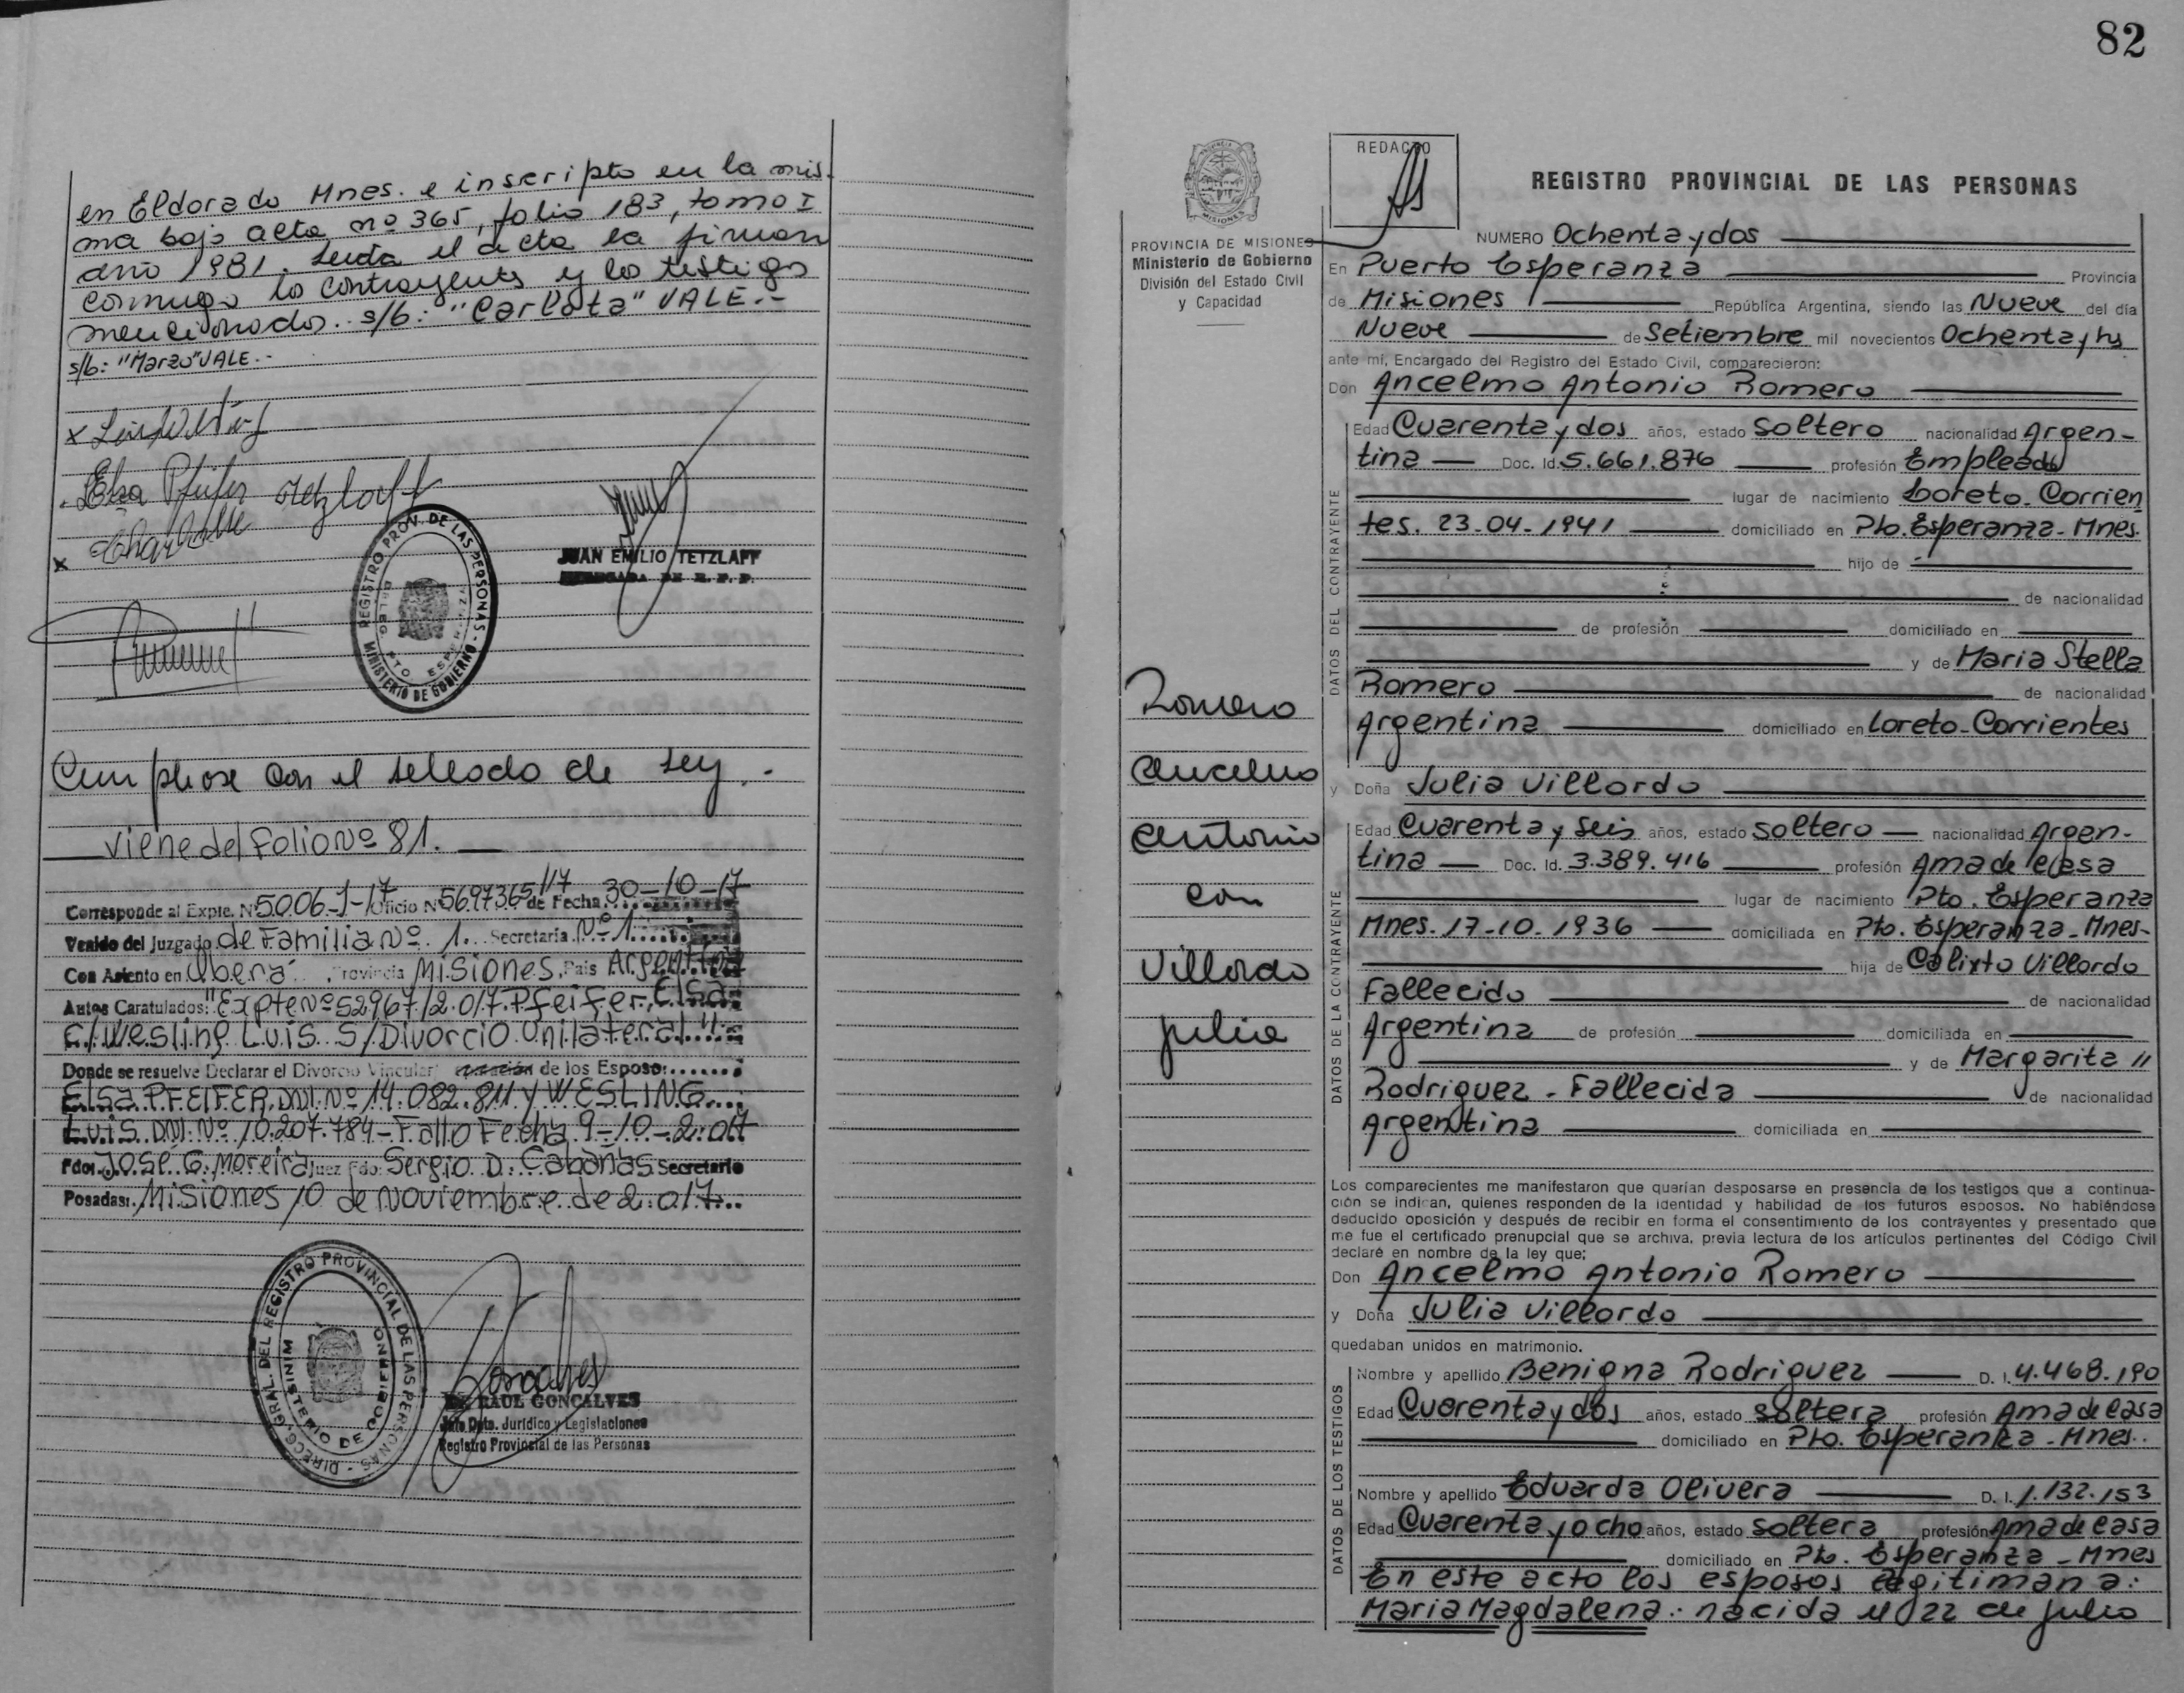 en Eldorado Mnes. e inscripto en la mis-
ma bajo acta nº 365, folio 183, tomo I
año 1981. Leida el acta la firman
conmigo los contrayentes y los testigos
mencionados. s/b: "Carlota" VALE.-
s/b: "Marzo" VALE.-
Elsa Pfeifer
Tetzlaff
REGISTRO PROV. DE LAS PERSONAS - MINISTERIO DE GOBIERNO
JUAN EMILIO TETZLAFF
Cumpliose con el sellado de Ley.-
viene del Folio Nº 81.
Corresponde al Expte. Nº 5006-J-17 Oficio Nº 5697365/17 de Fecha 30-10-17
Venido del Juzgado de Familia Nº 1. Secretaria Nº 1
Con Asiento en Oberá. Provincia Misiones, Pais Argentina
Autos Caratulados: "Expte Nº 52967/2.017. Pfeifer, Elsa
C/Wesling Luis S/Divorcio Unilateral"
Donde se resuelve Declarar el Divorcio Vincular de los Esposos
Elsa PFEIFER, DNI. Nº 14.082.811 y WESLING
Luis DNI. Nº 10.207.784 - Fallo Fecha 9-10-2.017
Fdo: Jose G. Moreira Juez Fdo: Sergio D. Cabañas Secretario
Posadas: Misiones 10 de Noviembre de 2.017
DIRECC. GRAL. DEL REGISTRO PROVINCIAL DE LAS PERSONAS - MINISTERIO DE GOBIERNO
RAUL GONCALVES
Jefe Dpto. Jurídico y Legislaciones
Registro Provincial de las Personas
82
PROVINCIA DE MISIONES
Ministerio de Gobierno
División del Estado Civil
y Capacidad
Romero
Ancelmo
Antonio
con
Villordo
Julia
REDACTO
REGISTRO PROVINCIAL DE LAS PERSONAS
NUMERO Ochenta y dos
En Puerto Esperanza Provincia
de Misiones República Argentina, siendo las Nueve del día
Nueve de Setiembre mil novecientos Ochenta y tres
ante mí, Encargado del Registro del Estado Civil, comparecieron:
Don Ancelmo Antonio Romero
DATOS DEL CONTRAYENTE
Edad Cuarenta y dos años, estado soltero nacionalidad Argen-
tina Doc. Id. 5.661.876 profesión Empleado
lugar de nacimiento Loreto-Corrien
tes. 23-04-1941 domiciliado en Pto. Esperanza-Mnes.
hijo de
de nacionalidad
de profesión domiciliado en
y de Maria Stella
Romero de nacionalidad
Argentina domiciliado en Loreto-Corrientes
y Doña Julia Villordo
DATOS DE LA CONTRAYENTE
Edad Cuarenta y seis años, estado soltero nacionalidad Argen-
tina Doc. Id. 3.389.416 profesión Ama de casa
lugar de nacimiento Pto. Esperanza
Mnes. 17-10-1936 domiciliada en Pto. Esperanza-Mnes-
hija de Calixto Villordo
Fallecido de nacionalidad
Argentina de profesión domiciliada en
y de Margarita "
Rodriguez - Fallecida de nacionalidad
Argentina domiciliada en
Los comparecientes me manifestaron que querían desposarse en presencia de los testigos que a continua-
ción se indican, quienes responden de la identidad y habilidad de los futuros esposos. No habiéndose
deducido oposición y después de recibir en forma el consentimiento de los contrayentes y presentado que
me fue el certificado prenupcial que se archiva, previa lectura de los artículos pertinentes del Código Civil
declaré en nombre de la ley que:
Don Ancelmo Antonio Romero
y Doña Julia Villordo
quedaban unidos en matrimonio.
DATOS DE LOS TESTIGOS
Nombre y apellido Benigna Rodriguez D. I. 4.468.190
Edad Cuarenta y dos años, estado soltera profesión Ama de casa
domiciliado en Pto. Esperanza-Mnes.
Nombre y apellido Eduarda Olivera D. I. 1.132.153
Edad Cuarenta y ocho años, estado soltera profesión Ama de casa
domiciliado en Pto. Esperanza-Mnes
En este acto los esposos legitiman a:
Maria Magdalena: nacida el 22 de julio